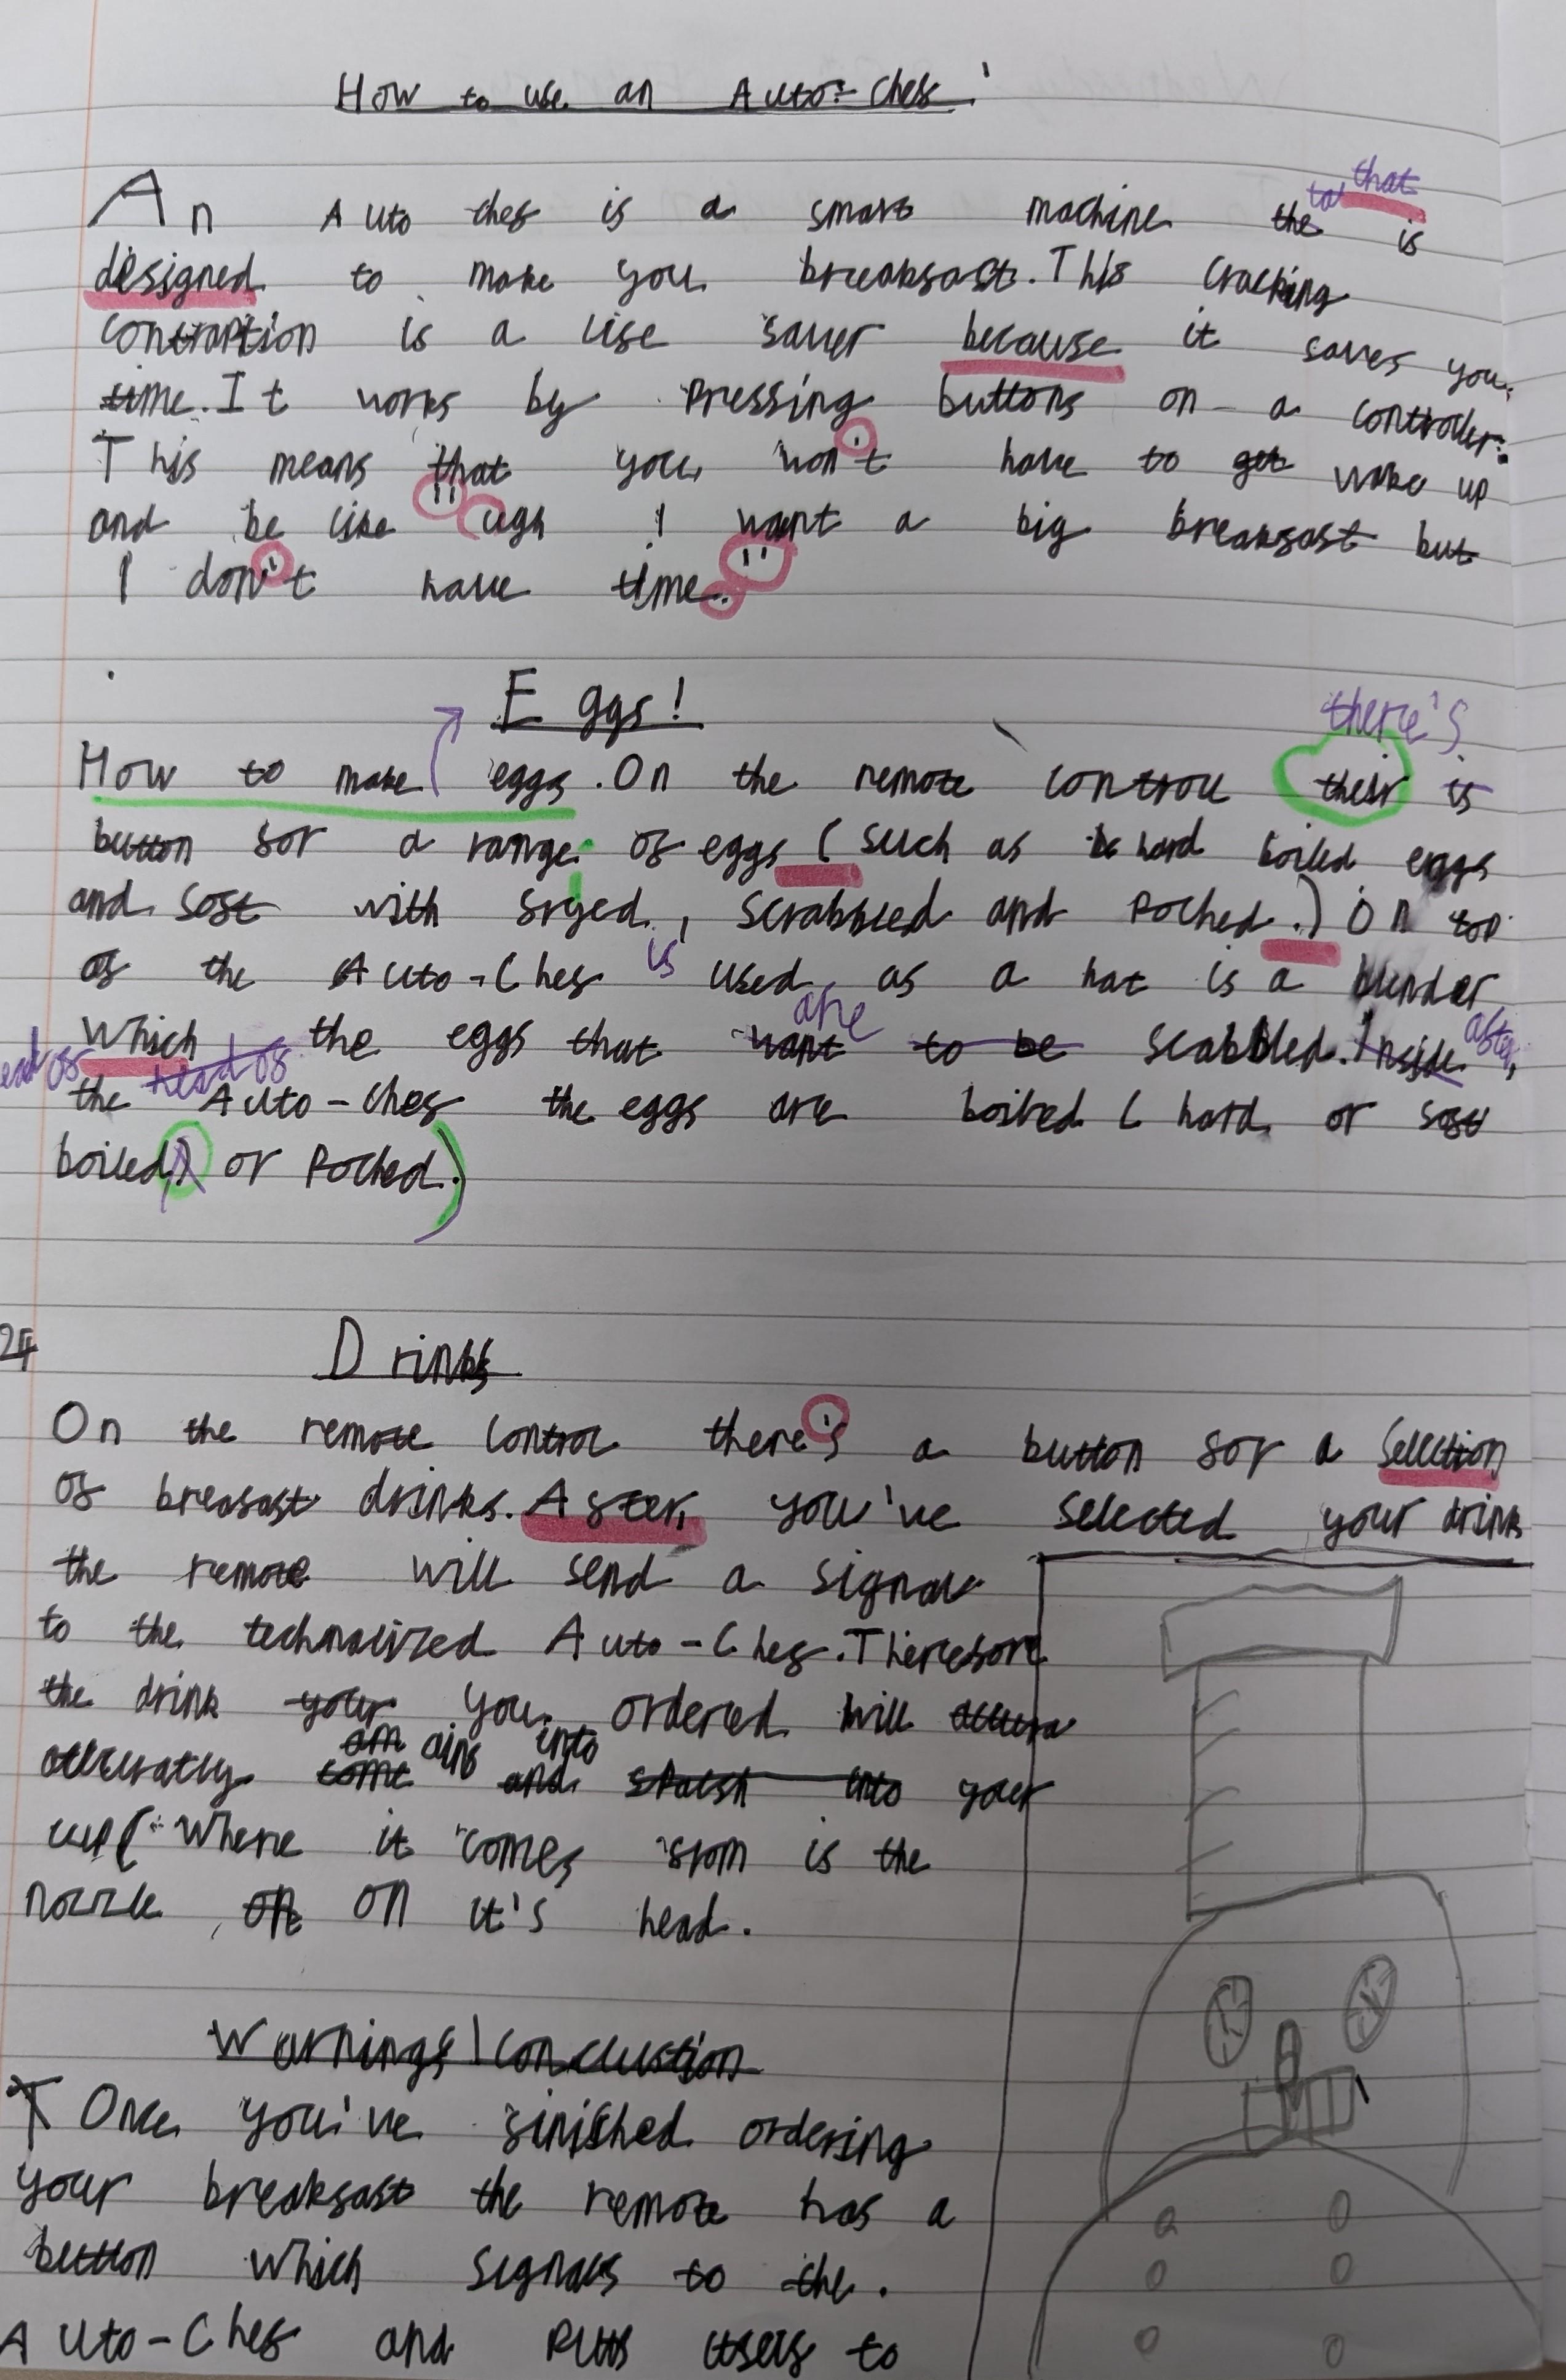 How to use an Auto-Chef
that
An Auto chef is a smart machine the is
designed to make you breakfast. This cracking
contraption is a life saver because it saves you
time. It works by pressing buttons on a controller.
This means that you won't have to get wake up
and be like "ugh I want a big breakfast but
I don't have time."
Eggs!
there's
How to make eggs. On the remote control their is
button for a range of eggs (such as hard boiled eggs
and soft with fryed, scrabbled and poched.) On top
of the Auto-Chef is used as a hat is a blender
are
Which the eggs that want to be scabbled. Inside after,
head of
the Auto-chef the eggs are boiled (hard or soft
boiled,) or Poched.)
24
Drinks
On the remote control there's a button for a selection
of breafast drinks. After, you've selected your drink
the remote will send a signal
to the technalized Auto-Chef. Therefore
the drink your you ordered will
am aim into
come and splash into your
cup(Where it comes from is the
nozzle on on it's head.
Warnings/conclustion
T Once you've finished ordering
your breakfast the remote has a
button which signals to the.
Auto-Chef and puts users to